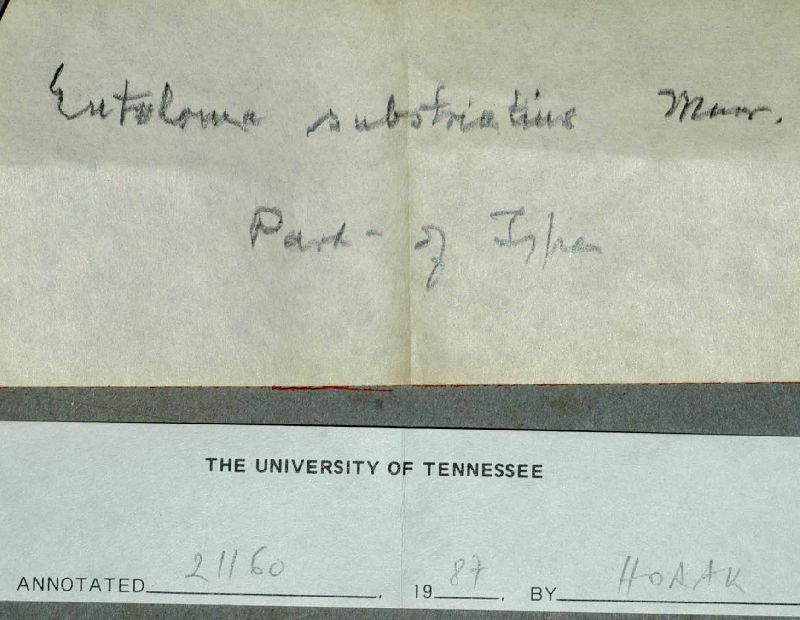 Entoloma substriatius Murr.
Part of Type
THE UNIVERSITY OF TENNESSEE
ANNOTATED 21160 . 19 87 . BY HORAK